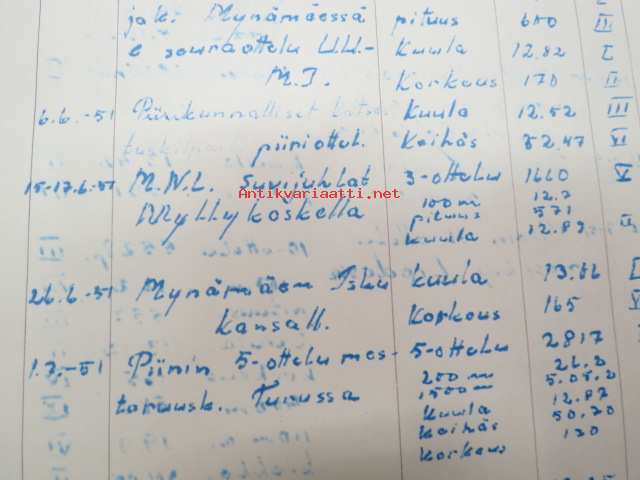 ja k: Mynämäessä pituus 680 III
e seuraottelu U.U.- Kuula 12.82 I
M.I. Korkeus 170 II
6.6.-51 Piirikunnalliset Kuula 12.52 III
piiriottel. Keihäs 52.47 VI
15-17.6-51 M.N.L. Suurjuhlat 3-ottelu 1660 V
Antikvariaatti.net
Myllykoskella 100 m 12.7
pituus 571
kuula 12.82
26.6-51 Mynämäen Isku kuula 13.06
kansall. Korkeus 165
1.7.-51 Piirin 5-ottelu mes- 5-ottelu 2817
taruusk. Turussa 200 m 26.0
1500 m 5.05.2
kuula 12.87
keihäs 50.20
korkeus 120